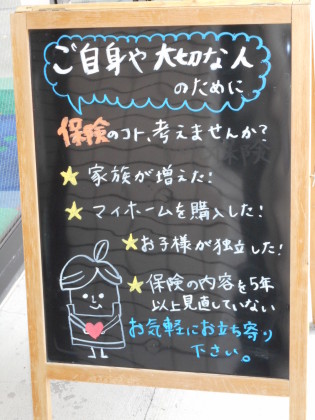 ご自身や大切な人
のために
保険のコト、考えませんか?
★家族が増えた!
★マイホームを購入した!
★お子様が独立した!
★保険の内容を5年
以上見直していない
お気軽にお立ち寄り
下さい。